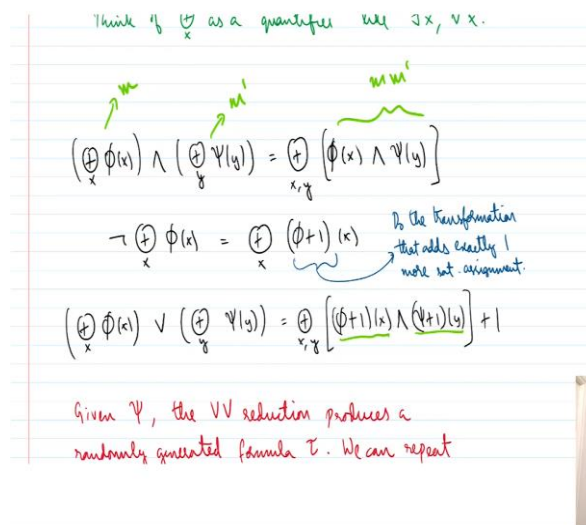 Think of ⊕_x as a quantifier like ∃x, ∀x.
m m' mm'
(⊕_x φ(x)) ∧ (⊕_y Ψ(y)) = ⊕_{x,y} [φ(x) ∧ Ψ(y)]
¬ ⊕_x φ(x) = ⊕_x (φ+1)(x)
Do the transformation
that adds exactly 1
more sat. assignment.
(⊕_x φ(x)) ∨ (⊕_y Ψ(y)) = ⊕_{x,y} [(φ+1)(x) ∧ (Ψ+1)(y)] + 1
Given Ψ, the VV reduction produces a
randomly generated formula τ. We can repeat